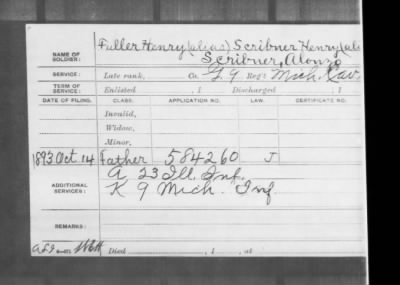 NAME OF SOLDIER: Fuller Henry (alias) Scribner Henry (als
Scribner, Alonzo
SERVICE: Late rank, Co. G. 9 Reg't Mich. Cav.
TERM OF SERVICE: Enlisted , 1 Discharged , 1
DATE OF FILING. CLASS. APPLICATION NO. LAW. CERTIFICATE NO.
Invalid,
Widow,
Minor,
1893 Oct 14 Father 584260 J
ADDITIONAL SERVICES: A 23 Ill. Inf.
K 9 Mich Inf
REMARKS:
Died , 1 , at